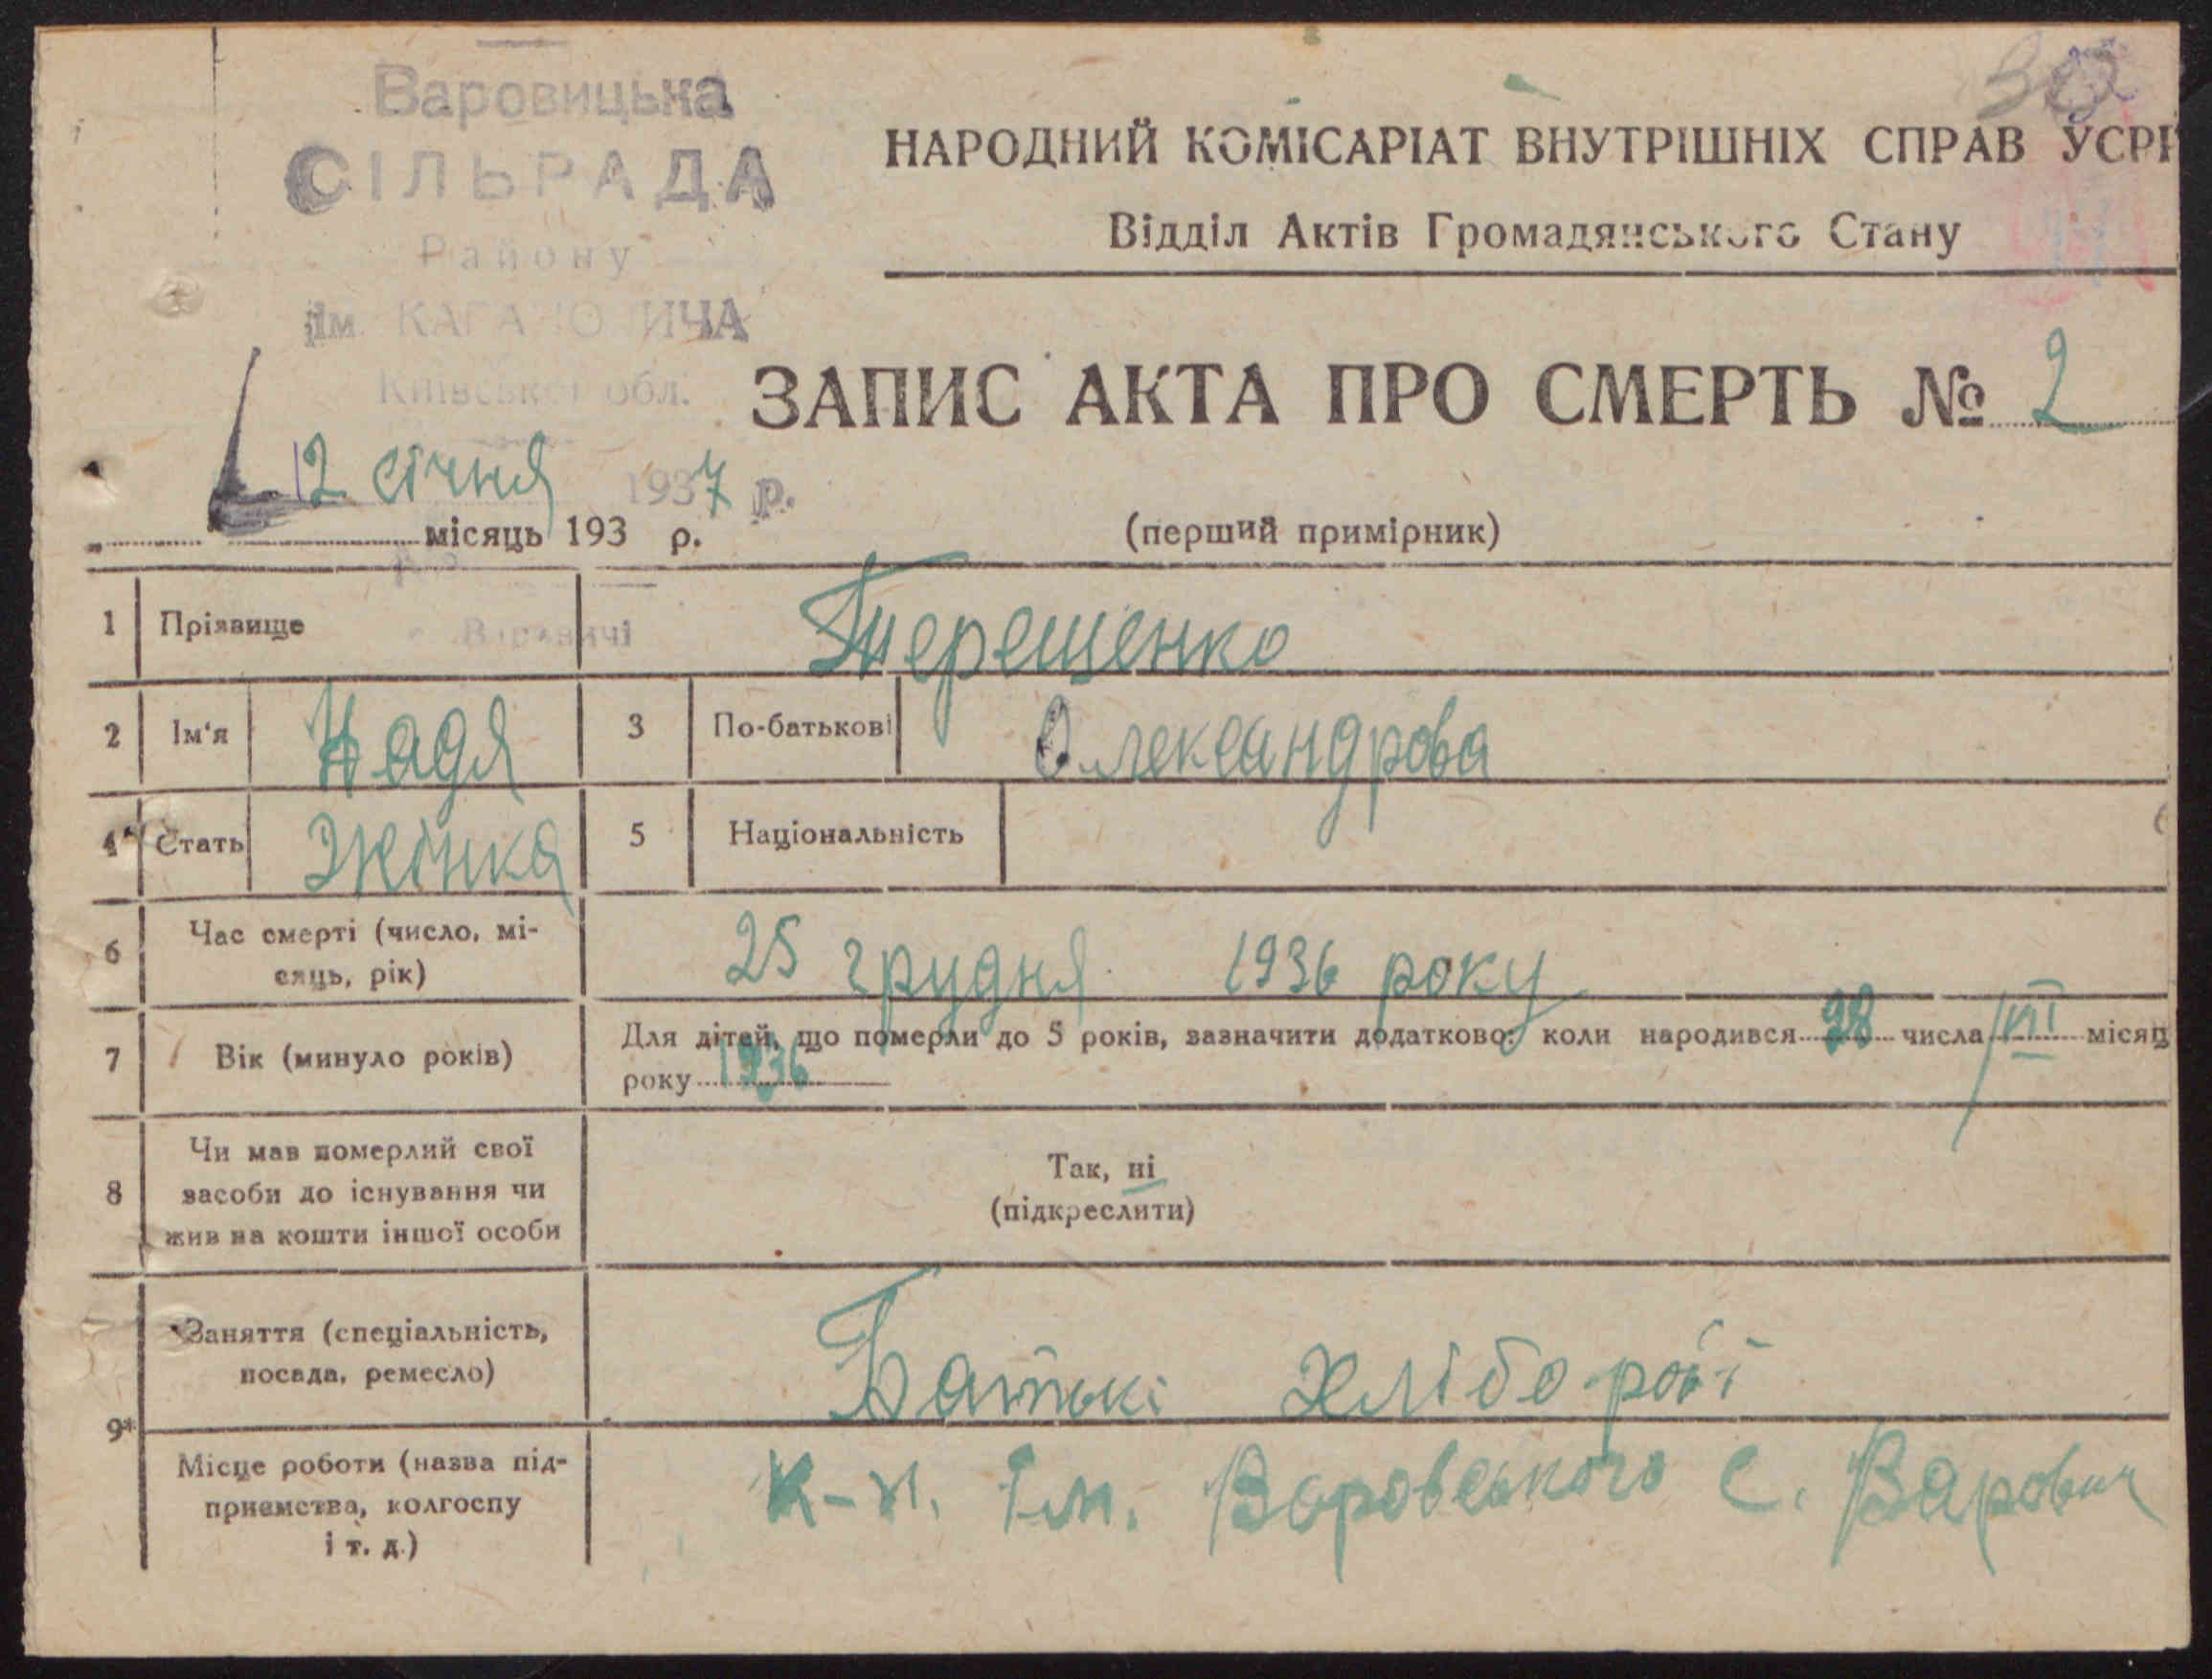 Варовицька
СІЛЬРАДА
Району
ім. КАГАНОВИЧА
Київської обл.
НАРОДНИЙ КОМІСАРІАТ ВНУТРІШНІХ СПРАВ УСРР
Відділ Актів Громадянського Стану
ЗАПИС АКТА ПРО СМЕРТЬ № 2
12 січня 1937 р.
місяць 193 р.
(перший примірник)
1 Прізвище Терещенко
с. Варовичі
2 Ім'я Надя 3 По-батькові Олександрова
4* Стать Жінка 5 Національність
6 Час смерті (число, мі-
сяць, рік) 25 грудня 1936 року
7 Вік (минуло років) Для дітей, що померли до 5 років, зазначити додатково: коли народився 28 числа VII місяц
року 1936
8 Чи мав померлий свої
засоби до існування чи
жив на кошти іншої особи
Так, ні
(підкреслити)
9* Заняття (спеціальність,
посада, ремесло) Батькі Хлібороби
Місце роботи (назва під-
приємства, колгоспу
і т. д.)
к-п. Ім. Воровського с. Варович